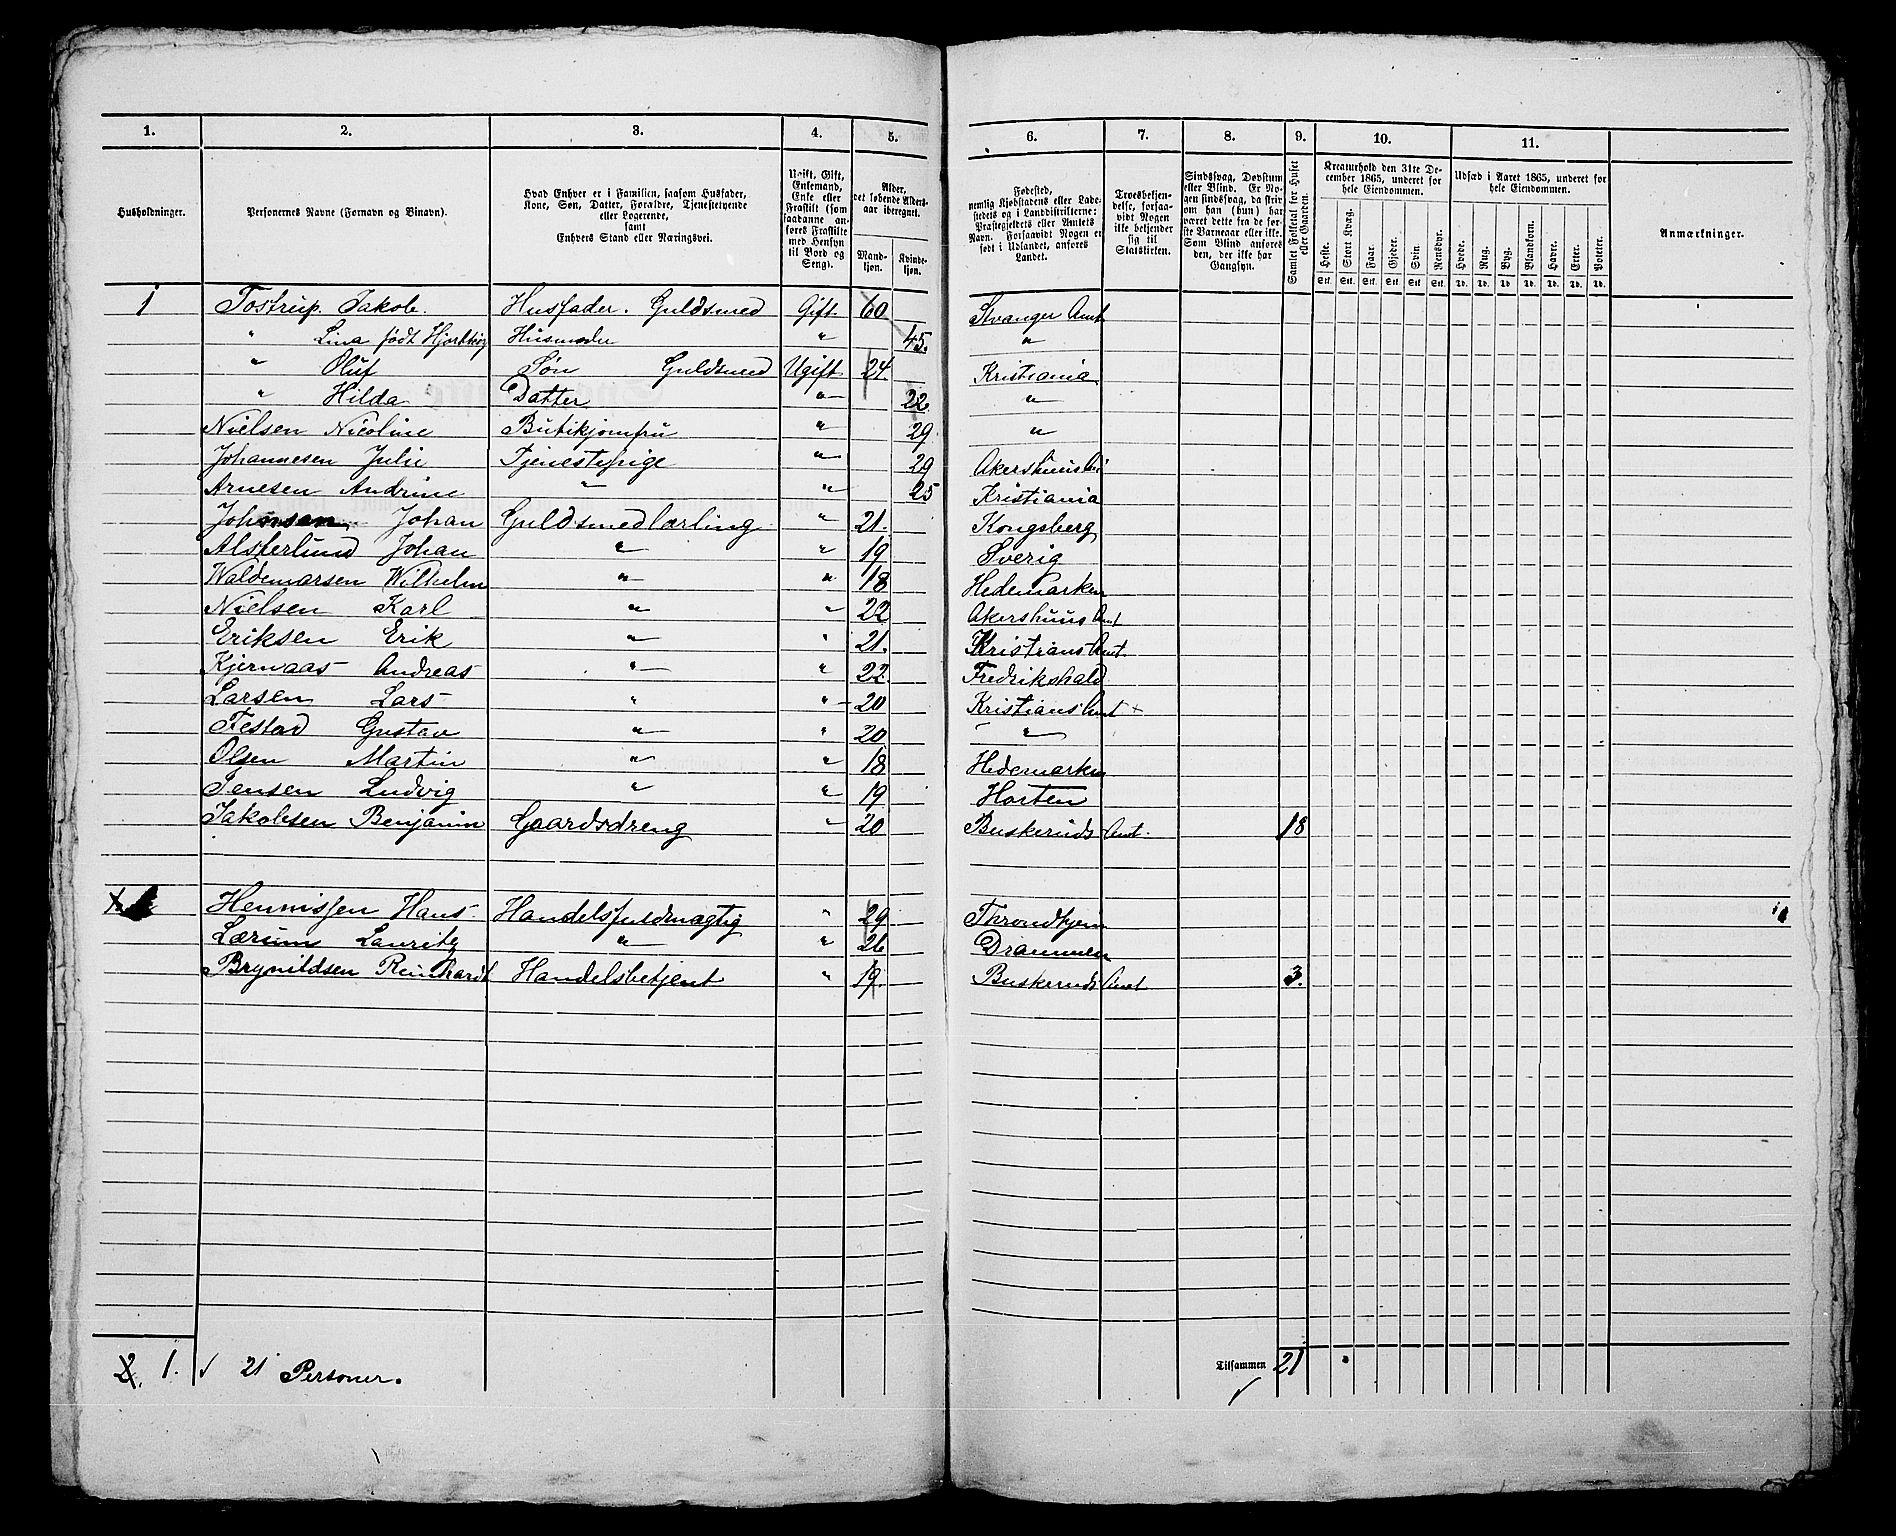 1. 2. 3. 4. 5. 6. 7. 8. 9. 10. 11.
Husholdninger.
Personernes Navne (Fornavn og Binavn).
Hvad Enhver er i Familien, saasom Husfader,
Kone, Søn, Datter, Forældre, Tjenestetyende
eller Logerende,
samt
Enhvers Stand eller Næringsvei.
Ugift, Gift,
Enkemand,
Enke eller
Fraskilt (som
saadanne an-
føres Fraskilte
med Hensyn
til Bord og
Seng).
Alder,
det løbende Alders-
aar iberegnet.
Mand-
kjøn.
Kvinde-
kjøn.
Fødested,
nemlig Kjøbstadens eller Lade-
stedets og i Landdistrikterne:
Præstegjeldets eller Amtets
Navn. Forsaavidt Nogen er
født i Udlandet, anføres
Landet.
Troesbekjen-
delse, forsaa-
vidt Nogen
ikke bekjender
sig til
Statskirken.
Sindssvag, Døvstum
eller Blind. Er No-
gen sindssvag, da skriv
om han (hun) har
været dette fra de før-
ste Barneaar eller ikke.
Som Blind anføres
den, der ikke har
Gangsyn.
Samlet Folketal for Huset
eller Gaarden.
Kreaturhold den 31te De-
cember 1865, underet for
hele Eiendommen.
Heste. Stort Kvæg. Faar. Gjeder. Svin. Rensdyr.
Stk. Stk. Stk. Stk. Stk. Stk.
Udsæd i Aaret 1865, underet for
hele Eiendommen.
Hvede. Rug. Byg. Blandkorn. Havre. Erter. Poteter.
Td. Td. Td. Td. Td. Td. Td.
Anmærkninger.
1 Tostrup, Jakob. Husfader. Guldsmed Gift. 60 Stvanger Amt
" Lina født Hjorthøy Husmoder " 45. "
" Oluf Søn Guldsmed Ugift 24. Kristiania
" Hilda Datter " 22 "
Nielsen Nicoline Butikjomfru " 29 "
Johannesen Julie Tjenestepige " 29 Akershuus A
Arnesen Andrine " " 25 Kristiania
Johnsen, Johan Guldsmedlærling " 21. Kongsberg
Alsterlund Johan " " 19 Sverig
Waldemarsen Wilhelm " " 18 Hedemarken
Nielsen Karl " " 22 Akershuus Amt
Eriksen Erik " " 21. Kristians Amt.
Kjernaas Andreas " " 22. Fredrikshald
Larsen Lars " " 20 Kristians Amt +
Festad Gustav " " 20 "
Olsen Martin " " 18 Hedemarken
Jensen Ludvig " " 19 Horten
Jakobsen Benjamin Gaardsdreng " 20 Buskeruds Amt. 18
Hennissen Hans Handelsfuldmægtig " 29 Throndhjem
Lærum Lauritz " " 26 Drammen
Brynildsen Reinhardt Handelsbetjent " 19. Buskeruds Amt 3.
2. 1. ✓ 21 Personer. Tilsammen 21
✓